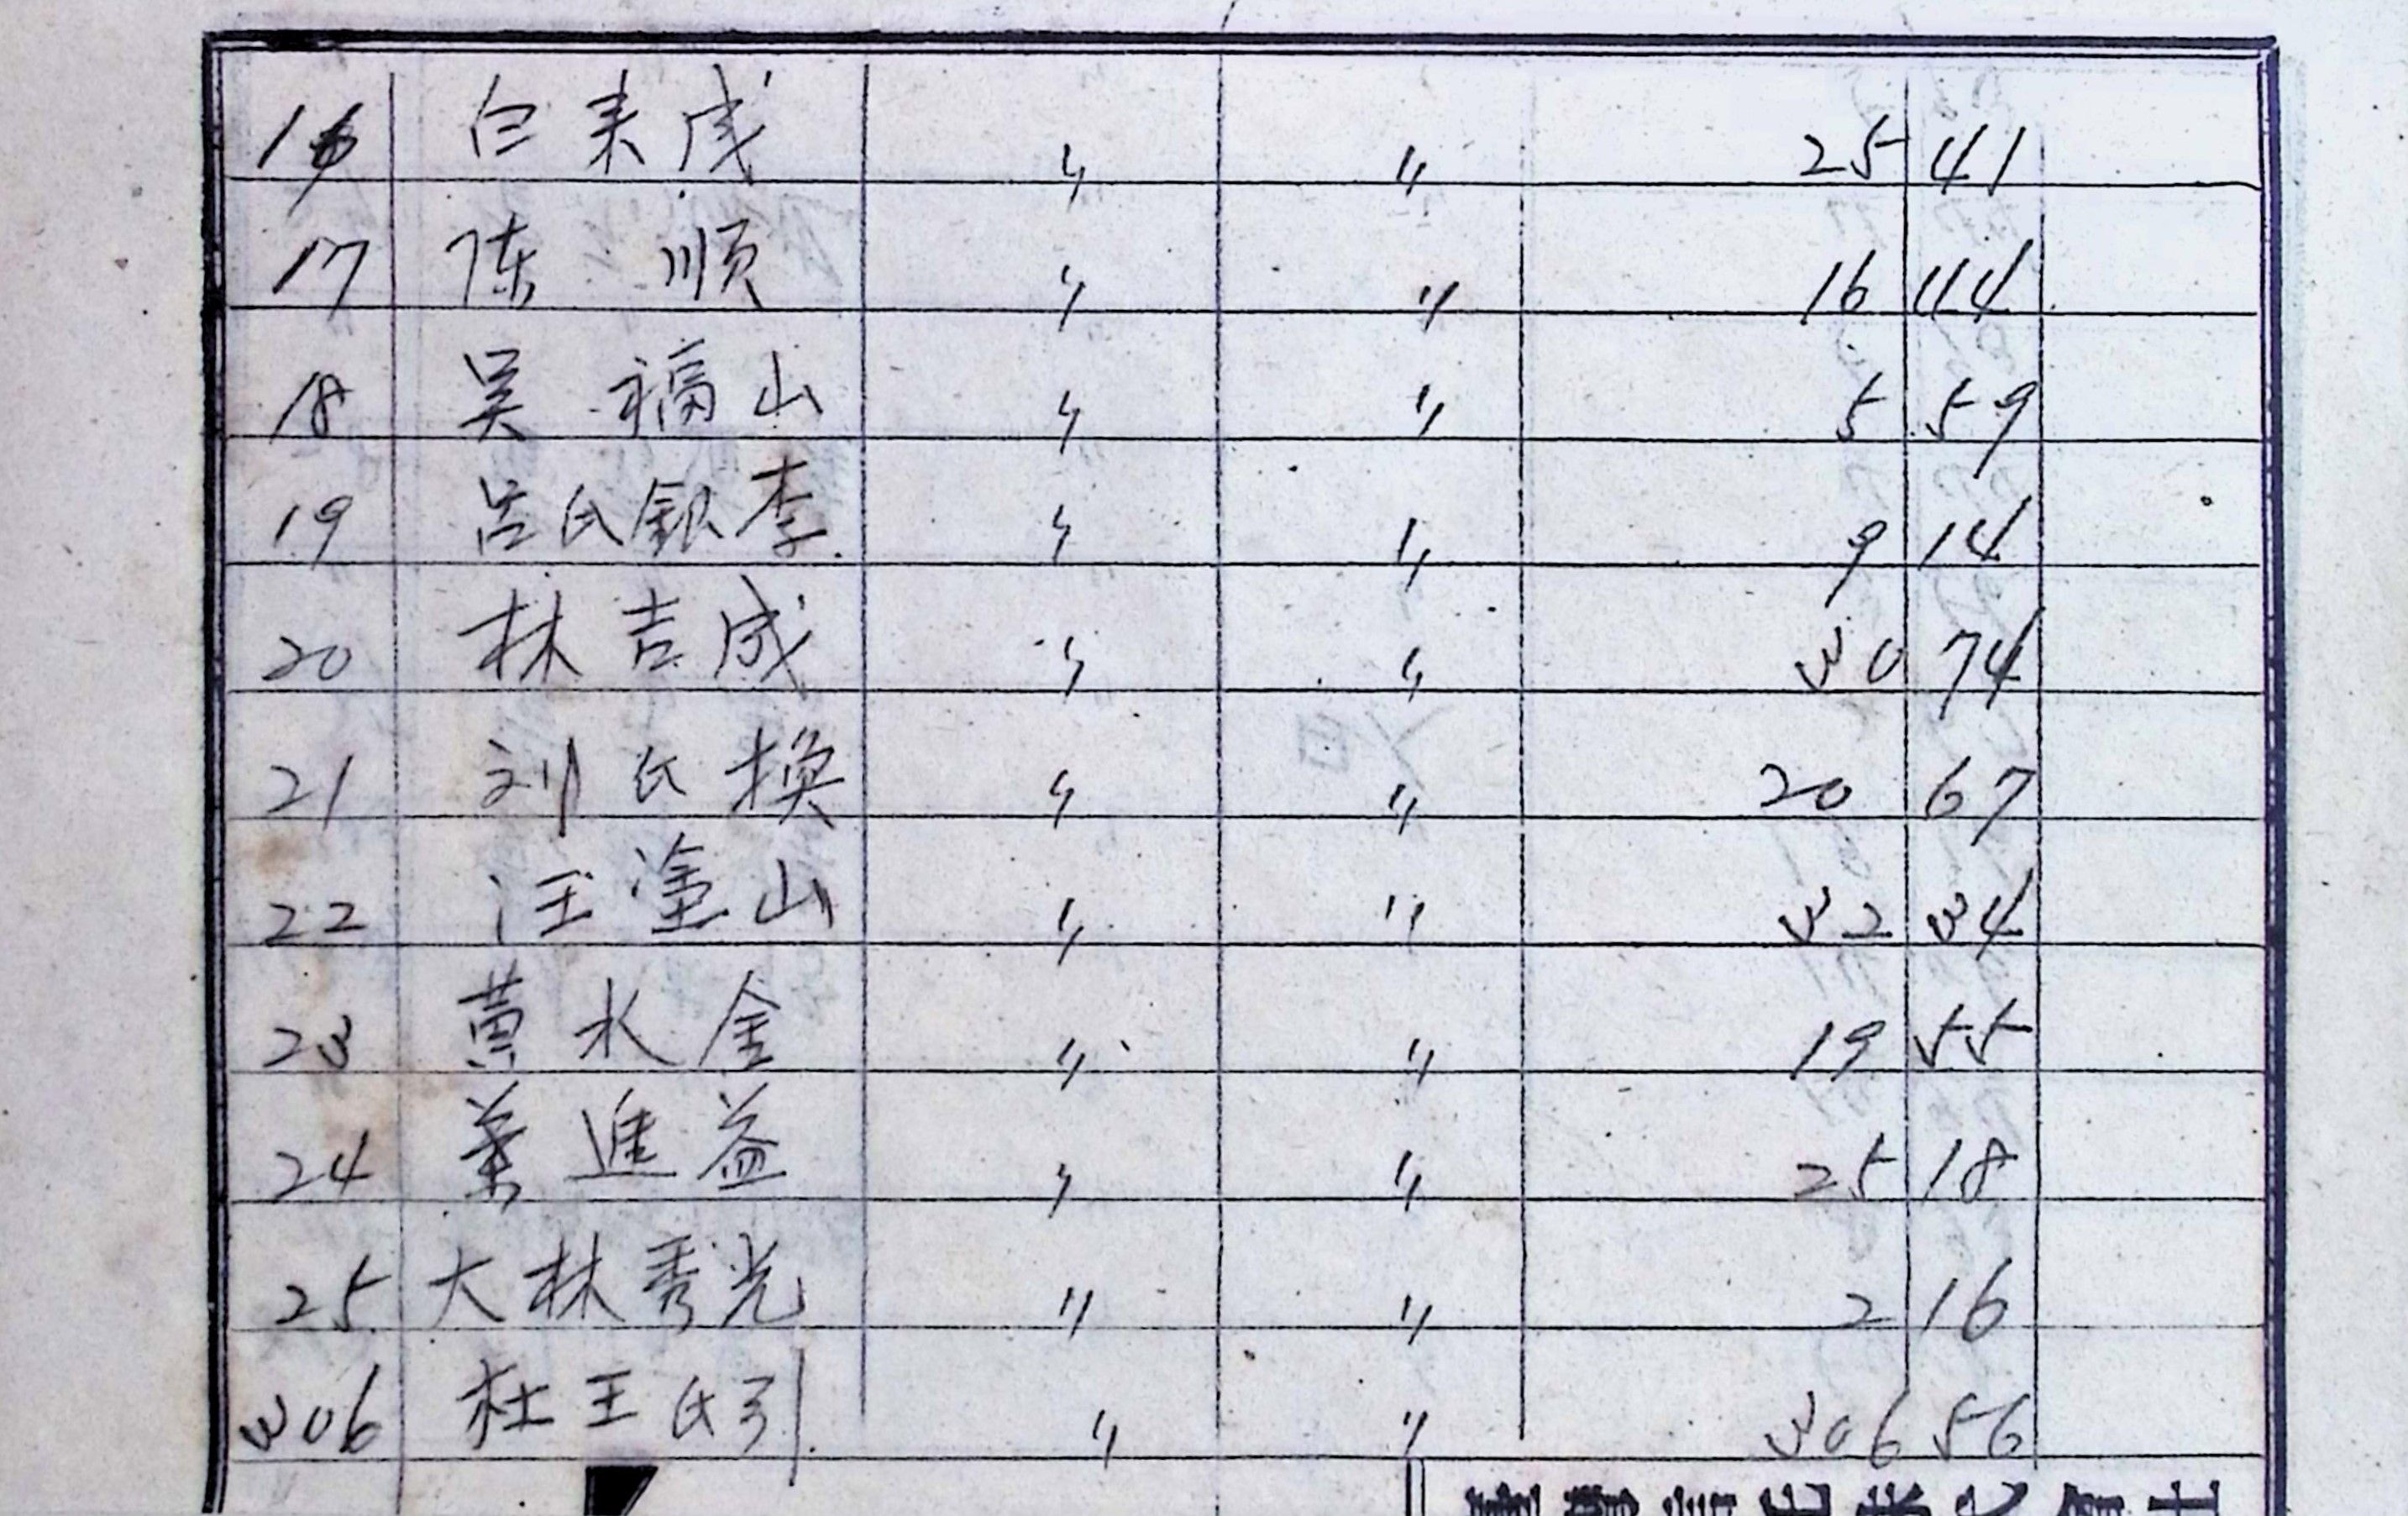 16 白来成 〃 〃 25 41
17 陈 順 〃 〃 16 44
18 吴福山 〃 〃 5 59
19 呂氏銀李 〃 〃 9 14
20 林吉成 〃 〃 30 74
21 刘氏換 〃 〃 20 67
22 汪塗山 〃 〃 32 34
23 黄水金 〃 〃 19 55
24 葉進益 〃 〃 25 18
25 大林秀光 〃 〃 2 16
306 杜王氏引 〃 〃 306 56